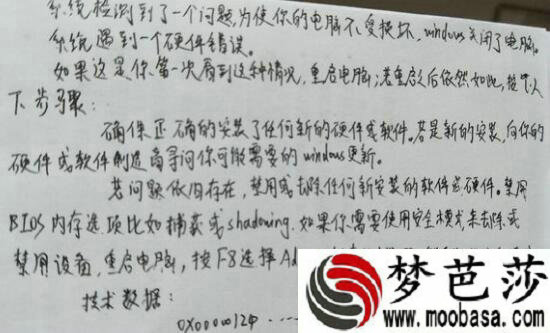 系统检测到了一个问题,为使你的电脑不受损坏,windows关闭了电脑。
系统遇到一个硬件错误。
如果这是你第一次看到这种情况,重启电脑;若重启后依然如此,按
下步骤:
确保正确的安装了任何新的硬件或软件。若是新的安装,向你的
硬件或软件制造商寻问你可能需要的windows更新。
若问题依旧存在,禁用或去除任何新安装的软件或硬件。禁用
BIOS内存选项比如捕获或shadowing.如果你需要使用安全模式来去除或
禁用设备,重启电脑,按F8选择Ad
技术数据:
0X00000124 ....
梦芭莎
www.moobasa.com